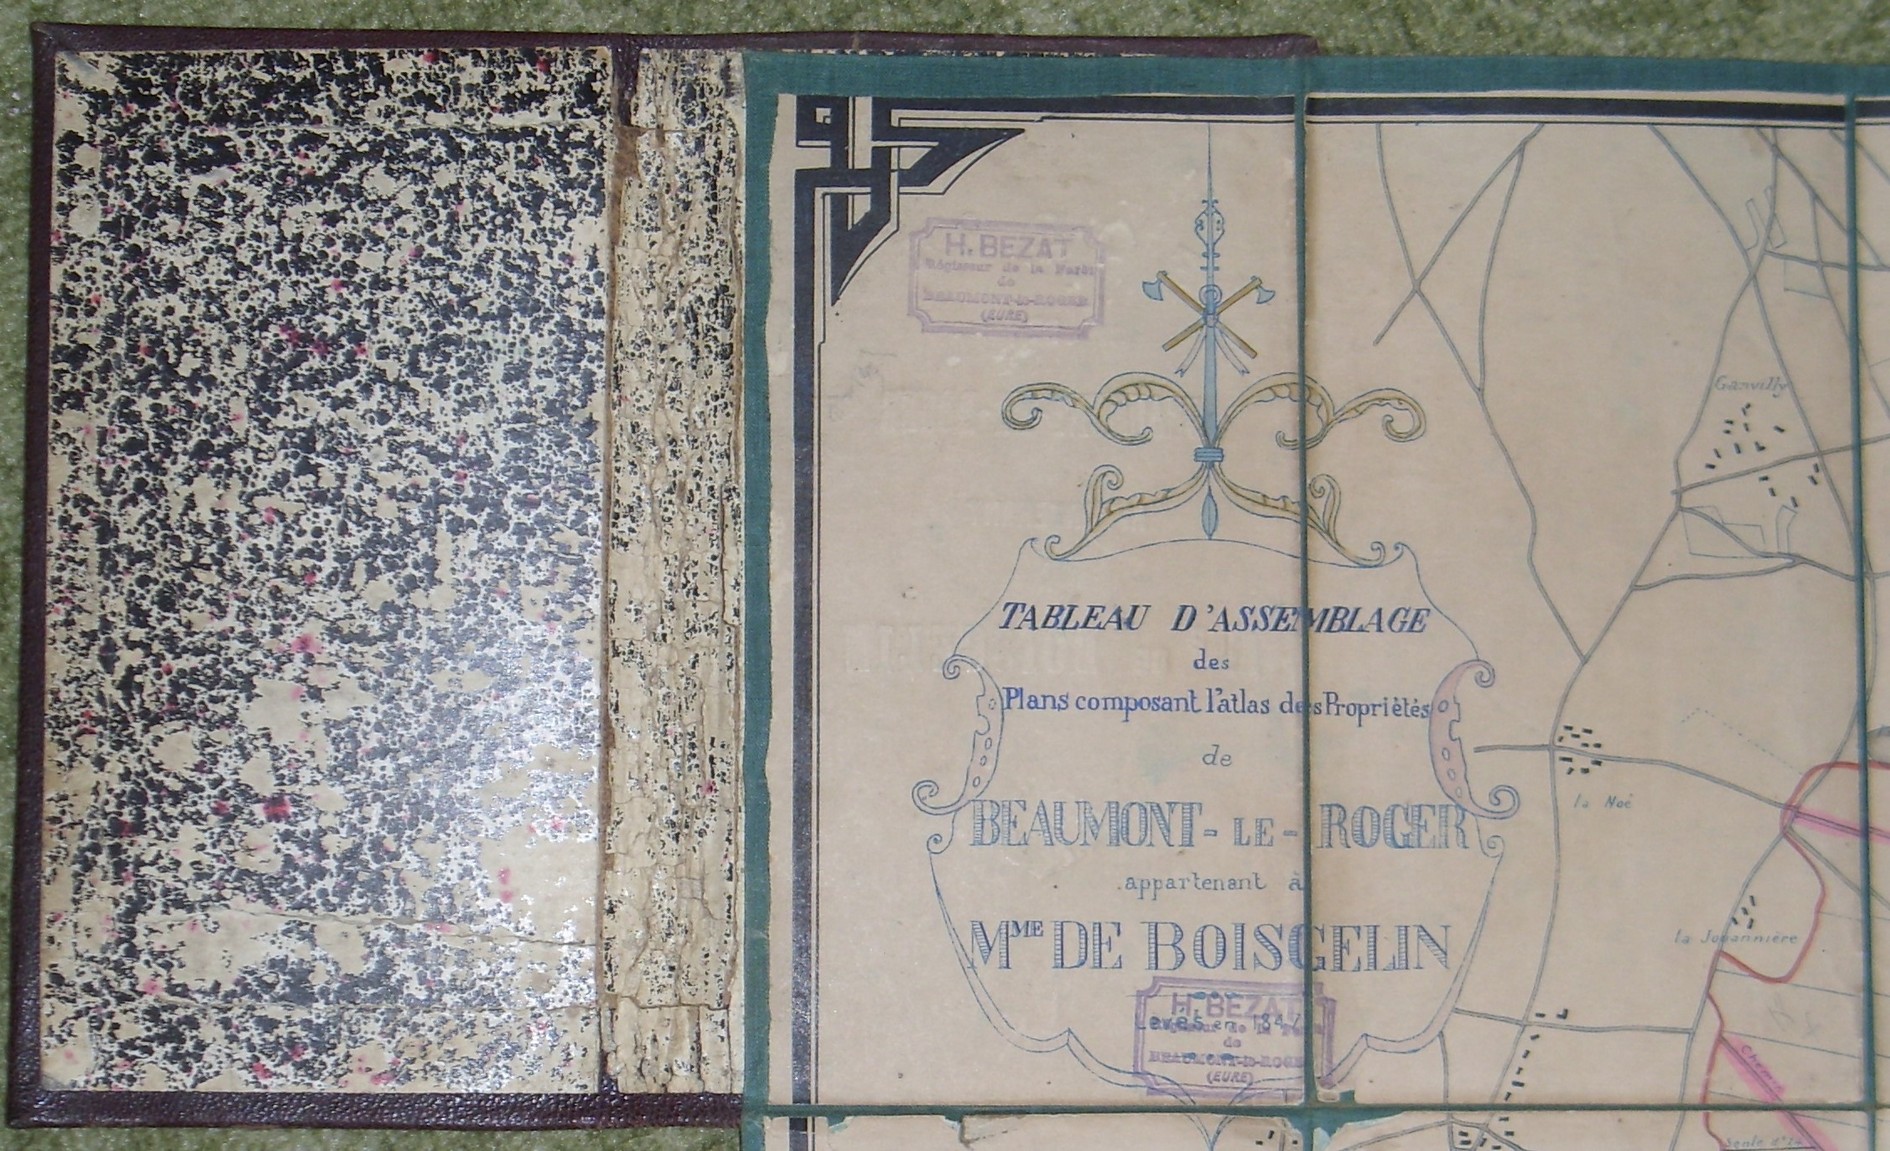 H. BEZAT
Régisseur de la Forêt
de
BEAUMONT-le-ROGER
(EURE)
TABLEAU D'ASSEMBLAGE
des
Plans composant l'atlas des Propriètés
de
BEAUMONT - LE - ROGER
appartenant à
MME DE BOISGELIN
Levés en 1847
H. BEZAT
Régisseur de la
de
BEAUMONT-le-ROGER
(EURE)
Granvilly
la Noë
la Jouannière
Chemin
Sente d'